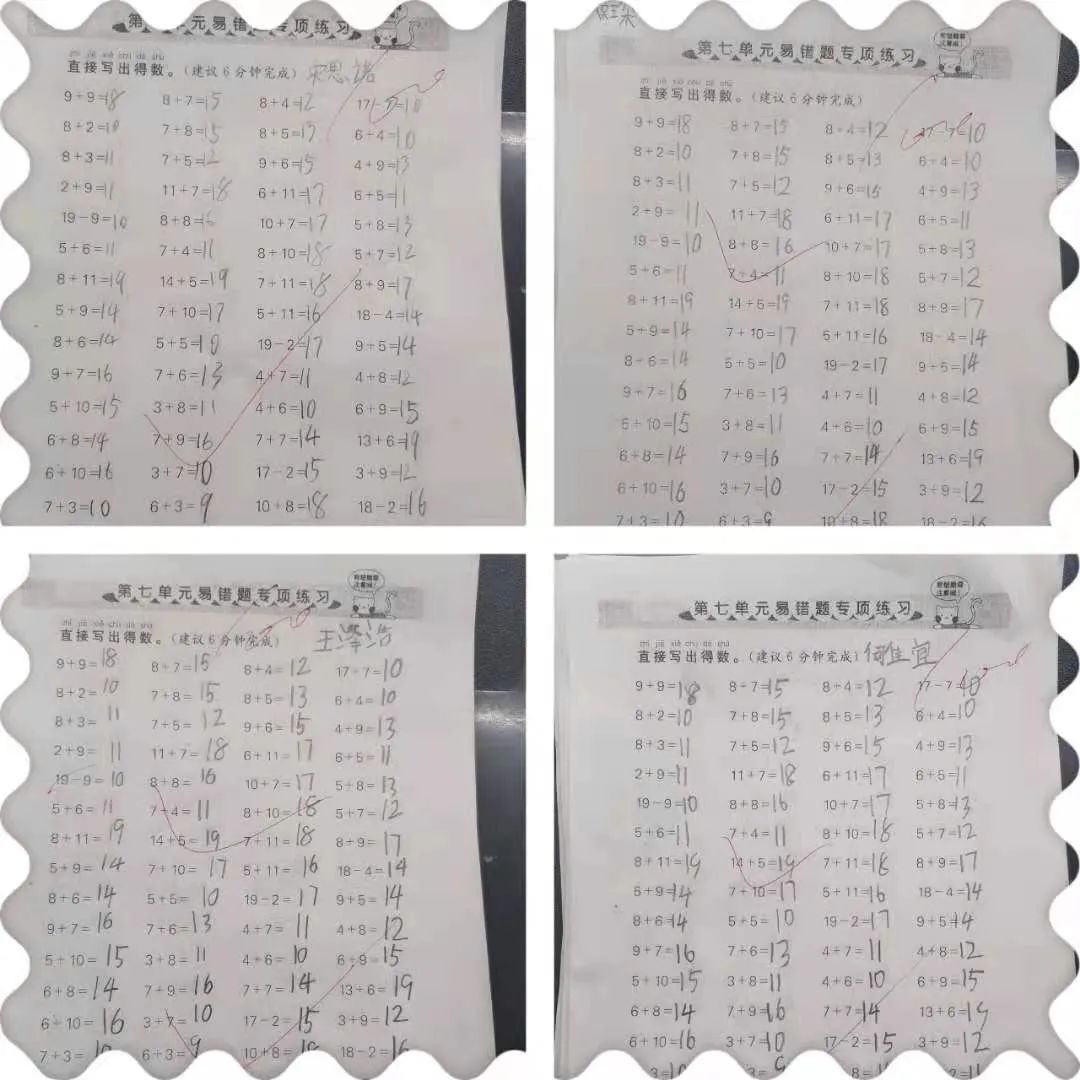 第七单元易错题专项练习
zhí jiē xiě chū dé shù
直接写出得数。(建议6分钟完成) 宋思诺
9+9=18 8+7=15 8+4=12 17-7=10
8+2=10 7+8=15 8+5=13 6+4=10
8+3=11 7+5=12 9+6=15 4+9=13
2+9=11 11+7=18 6+11=17 6+5=11
19-9=10 8+8=16 10+7=17 5+8=13
5+6=11 7+4=11 8+10=18 5+7=12
8+11=19 14+5=19 7+11=18 8+9=17
5+9=14 7+10=17 5+11=16 18-4=14
8+6=14 5+5=10 19-2=17 9+5=14
9+7=16 7+6=13 4+7=11 4+8=12
5+10=15 3+8=11 4+6=10 6+9=15
6+8=14 7+9=16 7+7=14 13+6=19
6+10=16 3+7=10 17-2=15 3+9=12
7+3=10 6+3=9 10+8=18 18-2=16
第七单元易错题专项练习
zhí jiē xiě chū dé shù
直接写出得数。(建议6分钟完成)
9+9=18 8+7=15 8+4=12 17-7=10
8+2=10 7+8=15 8+5=13 6+4=10
8+3=11 7+5=12 9+6=15 4+9=13
2+9=11 11+7=18 6+11=17 6+5=11
19-9=10 8+8=16 10+7=17 5+8=13
5+6=11 7+4=11 8+10=18 5+7=12
8+11=19 14+5=19 7+11=18 8+9=17
5+9=14 7+10=17 5+11=16 18-4=14
8+6=14 5+5=10 19-2=17 9+5=14
9+7=16 7+6=13 4+7=11 4+8=12
5+10=15 3+8=11 4+6=10 6+9=15
6+8=14 7+9=16 7+7=14 13+6=19
6+10=16 3+7=10 17-2=15 3+9=12
7+3=10 6+3=9 10+8=18 18-2=16
第七单元易错题专项练习
zhí jiē xiě chū dé shù
直接写出得数。(建议6分钟完成) 王泽浩
9+9=18 8+7=15 8+4=12 17-7=10
8+2=10 7+8=15 8+5=13 6+4=10
8+3=11 7+5=12 9+6=15 4+9=13
2+9=11 11+7=18 6+11=17 6+5=11
19-9=10 8+8=16 10+7=17 5+8=13
5+6=11 7+4=11 8+10=18 5+7=12
8+11=19 14+5=19 7+11=18 8+9=17
5+9=14 7+10=17 5+11=16 18-4=14
8+6=14 5+5=10 19-2=17 9+5=14
9+7=16 7+6=13 4+7=11 4+8=12
5+10=15 3+8=11 4+6=10 6+9=15
6+8=14 7+9=16 7+7=14 13+6=19
6+10=16 3+7=10 17-2=15 3+9=12
7+3=10 6+3=9 10+8=18 18-2=16
第七单元易错题专项练习
zhí jiē xiě chū dé shù
直接写出得数。(建议6分钟完成)
9+9=18 8+7=15 8+4=12 17-7=10
8+2=10 7+8=15 8+5=13 6+4=10
8+3=11 7+5=12 9+6=15 4+9=13
2+9=11 11+7=18 6+11=17 6+5=11
19-9=10 8+8=16 10+7=17 5+8=13
5+6=11 7+4=11 8+10=18 5+7=12
8+11=19 14+5=19 7+11=18 8+9=17
5+9=14 7+10=17 5+11=16 18-4=14
8+6=14 5+5=10 19-2=17 9+5=14
9+7=16 7+6=13 4+7=11 4+8=12
5+10=15 3+8=11 4+6=10 6+9=15
6+8=14 7+9=16 7+7=14 13+6=19
6+10=16 3+7=10 17-2=15 3+9=12